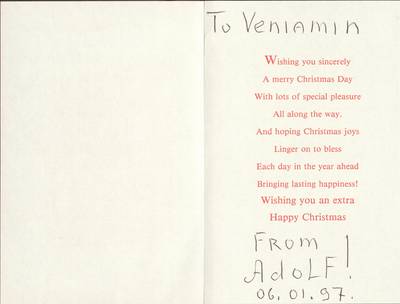 To Veniamin
Wishing you sincerely
A merry Christmas Day
With lots of special pleasure
All along the way.
And hoping Christmas joys
Linger on to bless
Each day in the year ahead
Bringing lasting happiness!
Wishing you an extra
Happy Christmas
From
Adolf!
06.01.97.